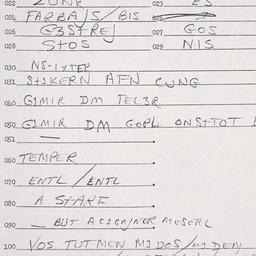 022 ZONK 023 ES
024 FARBA/S/BIS
026 G3STREJ 027 GOS
028 STOS 029 NIS
030 NS-1XTER
031 STIKERN AFN CUNG
040 GIMIR DM TEL3R
050 GIMIR DM GOPL ONSTTOT
051 —
060 TEMPER
070 ENTL/ENTL
080 A STARE
090 — BUT ACICA/NER MESERL
100 VOS TUTMEN MIDOS/MIDEM